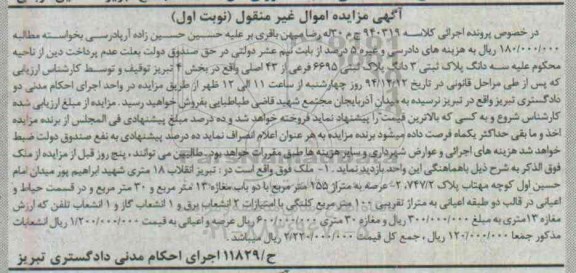 آگهی مزایده اموال غیر منقول (نوبت اول)
در خصوص پرونده اجرائی کلاسه ۹۴۰۳۱۹ ج م ۳ له رضا میهن باقری بر علیه حسین حسین زاده آرپادرسی بخواسته مطالبه
۱۸۰/۰۰۰/۰۰۰ ریال به هزینه های دادرسی و غیره ۵ درصد از بابت نیم عشر دولتی در حق صندوق دولت بعلت عدم پرداخت دین از ناحیه
محکوم علیه سه دانگ پلاک ثبتی ۳ دانگ پلاک ثبتی ۶۶۹۵ فرعی از ۴۳ اصلی واقع در بخش ۴ تبریز توقیف و توسط کارشناس ارزیابی
که پس از طی مراحل قانونی در تاریخ ۹۴/۱۲/۱۲ روز چهارشنبه از ساعت ۱۱ الی ۱۲ ظهر از طریق مزایده در واحد اجرای احکام مدنی دو
دادگستری تبریز واقع در تبریز نرسیده به میدان آذربایجان مجتمع شهید قاضی طباطبایی بفروش خواهید رسید. مزایده از مبلغ ارزیابی شده
کارشناس شروع و به کسی که بالاترین قیمت را پیشنهاد نماید فروخته خواهد شد و ده درصد مبلغ پیشنهادی فی المجلس از برنده مزایده
اخذ و ما بقی حداکثر یکماه فرصت داده میشود برنده مزایده به هر عنوان اعلام انصراف نماید ده درصد پیشنهادی به نفع صندوق دولت ضبط
خواهد شد هزینه های اجرائی و عوارض شهرداری و سایر هزینه ها طبق مقررات خواهد بود. طالبین می توانند، پنج روز قبل از مزایده از ملک
فوق الذکر به شرح ذیل باهماهنگی این واحد بازدید نماید. ۱- ملک فوق واقع است در : تبریز انقلاب ۱۸ متری شهید ابراهیم پور میدان امام
حسین اول کوچه مهتاب پلاک ۲،۷۴۷/۲- عرصه به متراژ ۱۵۵ متر مربع با دو باب مغازه ۱۳ متر مربع و ۳۰ متر مربع و در قسمت حیاط و
اعیانی در قالب دو طبقه اعیانی به متراژ تقریبی ۱۰۰ متر مربع کلنگی با امتیازات ۲ انشعاب برق و ۱ انشعاب گاز و ۱ انشعاب تلفن که ارزش
مغازه ۱۳متری به مبلغ ۳۰۰/۰۰۰/۰۰۰ ریال و مغازه ۳۰ متری ۶۰۰/۰۰۰/۰۰۰ ریال عرصه و اعیانی به قیمت ۱/۲۰۰/۰۰۰/۰۰۰ ریال انشعابات
مذکور جمعا ۱۲۰/۰۰۰/۰۰۰ ریال ، جمع کل قیمت ۲/۲۲۰/۰۰۰/۰۰۰ ریال میباشد.
ح/۱۱۸۲۹ اجرای احکام مدنی دادگستری تبریز